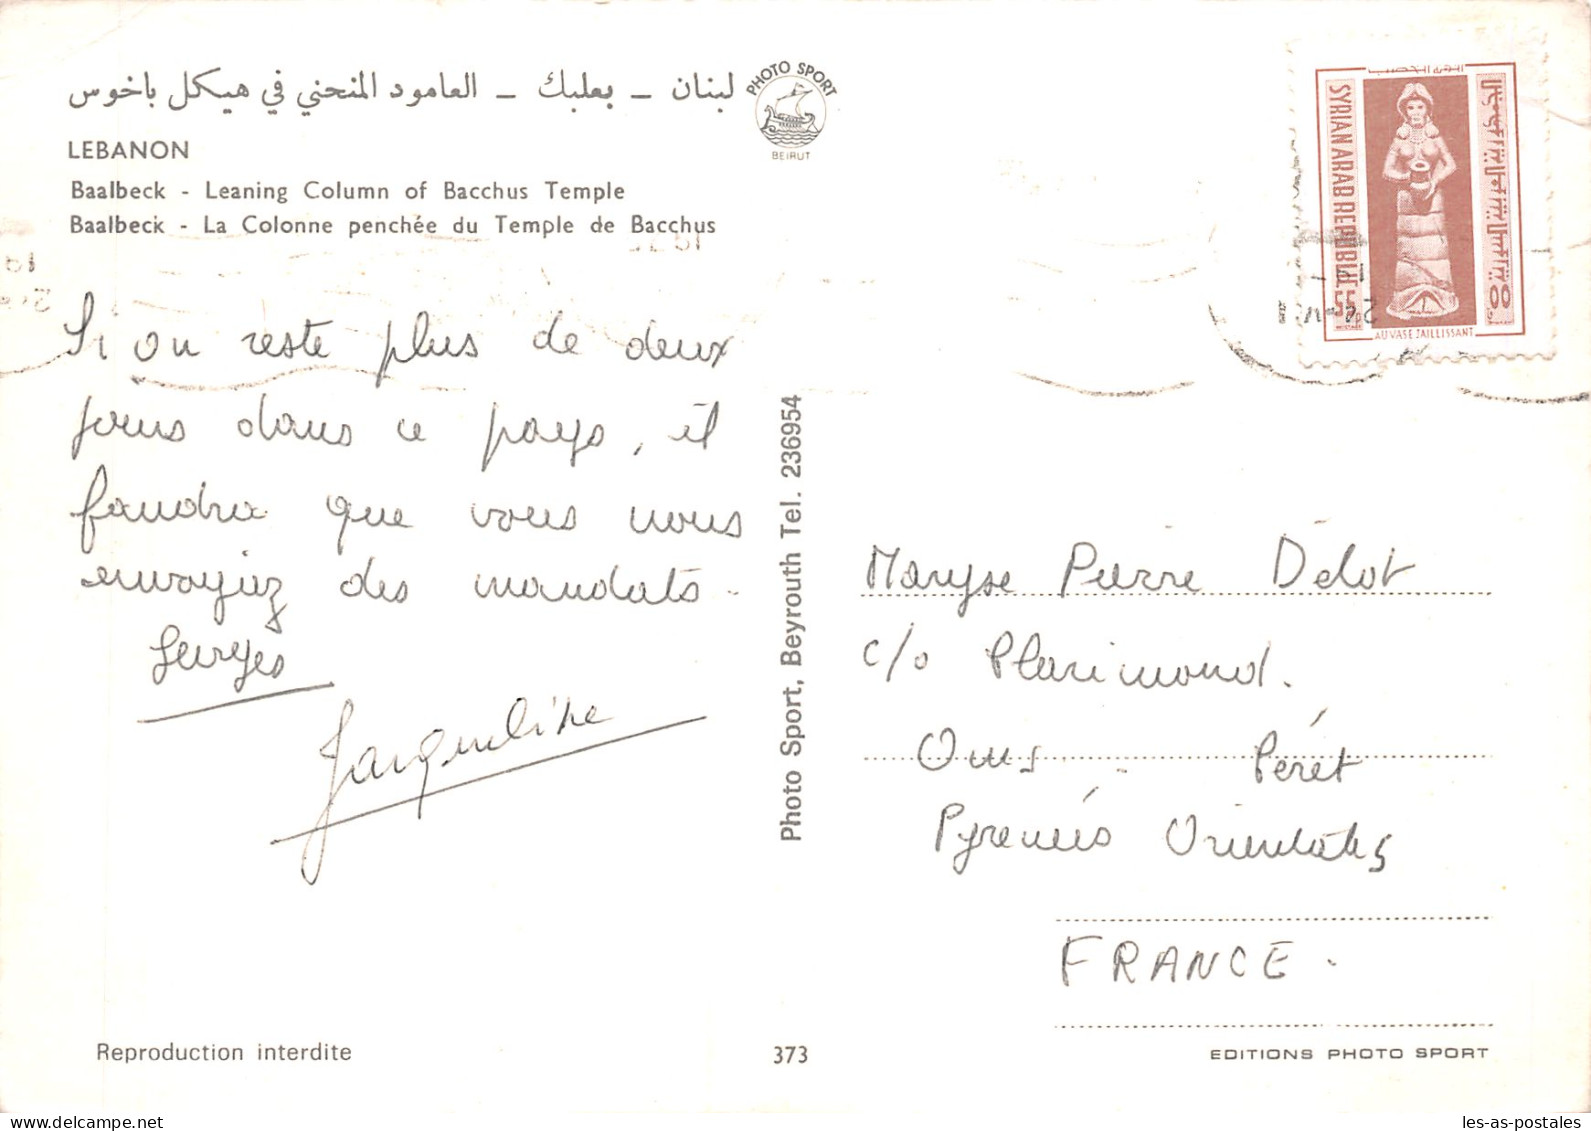 لبنان - بعلبك - العامود المنحني في هيكل باخوس
PHOTO SPORT
BEIRUT
LEBANON
Baalbeck - Leaning Column of Bacchus Temple
Baalbeck - La Colonne penchée du Temple de Bacchus
SYRIAN ARAB REPUBLIC
AU VASE JAILLISSANT
Si on reste plus de deux
jours dans ce pays, il
faudra que vous nous
envoyiez des mandats.
Georges
Jacqueline
Photo Sport, Beyrouth Tel. 236954
Maryse Pierre Délot
c/o Plarimond.
Oms - Péret
Pyrénées Orientales
FRANCE.
Reproduction interdite
373
EDITIONS PHOTO SPORT
les-as-postales